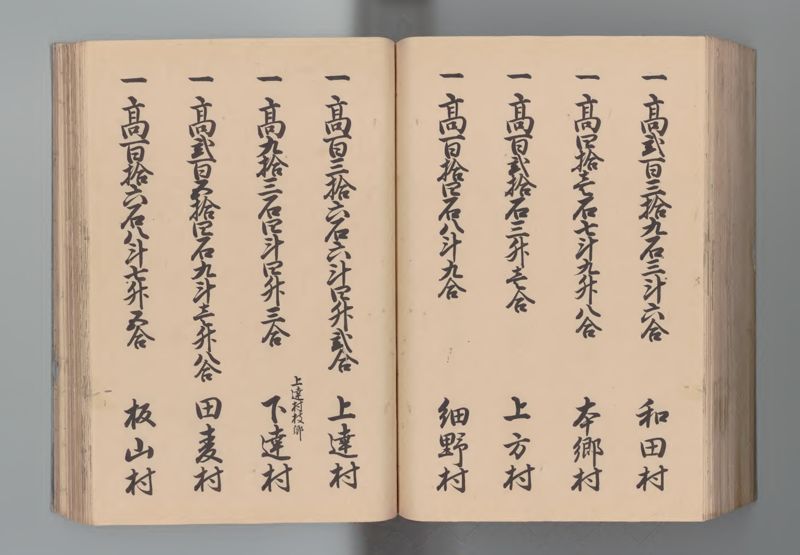 一高弐百三拾九石三斗六合 和田村
一高四拾壱石七斗九升八合 本郷村
一高百弐拾石三升壱合 上方村
一高百拾四石八斗九合 細野村
一高百三拾六石六斗四升弐合 上達村
上達村枝郷
一高九拾三石四斗四升三合 下達村
一高弐百五拾四石九斗壱升八合 田麦村
一高百拾六石八斗七升五合 板山村